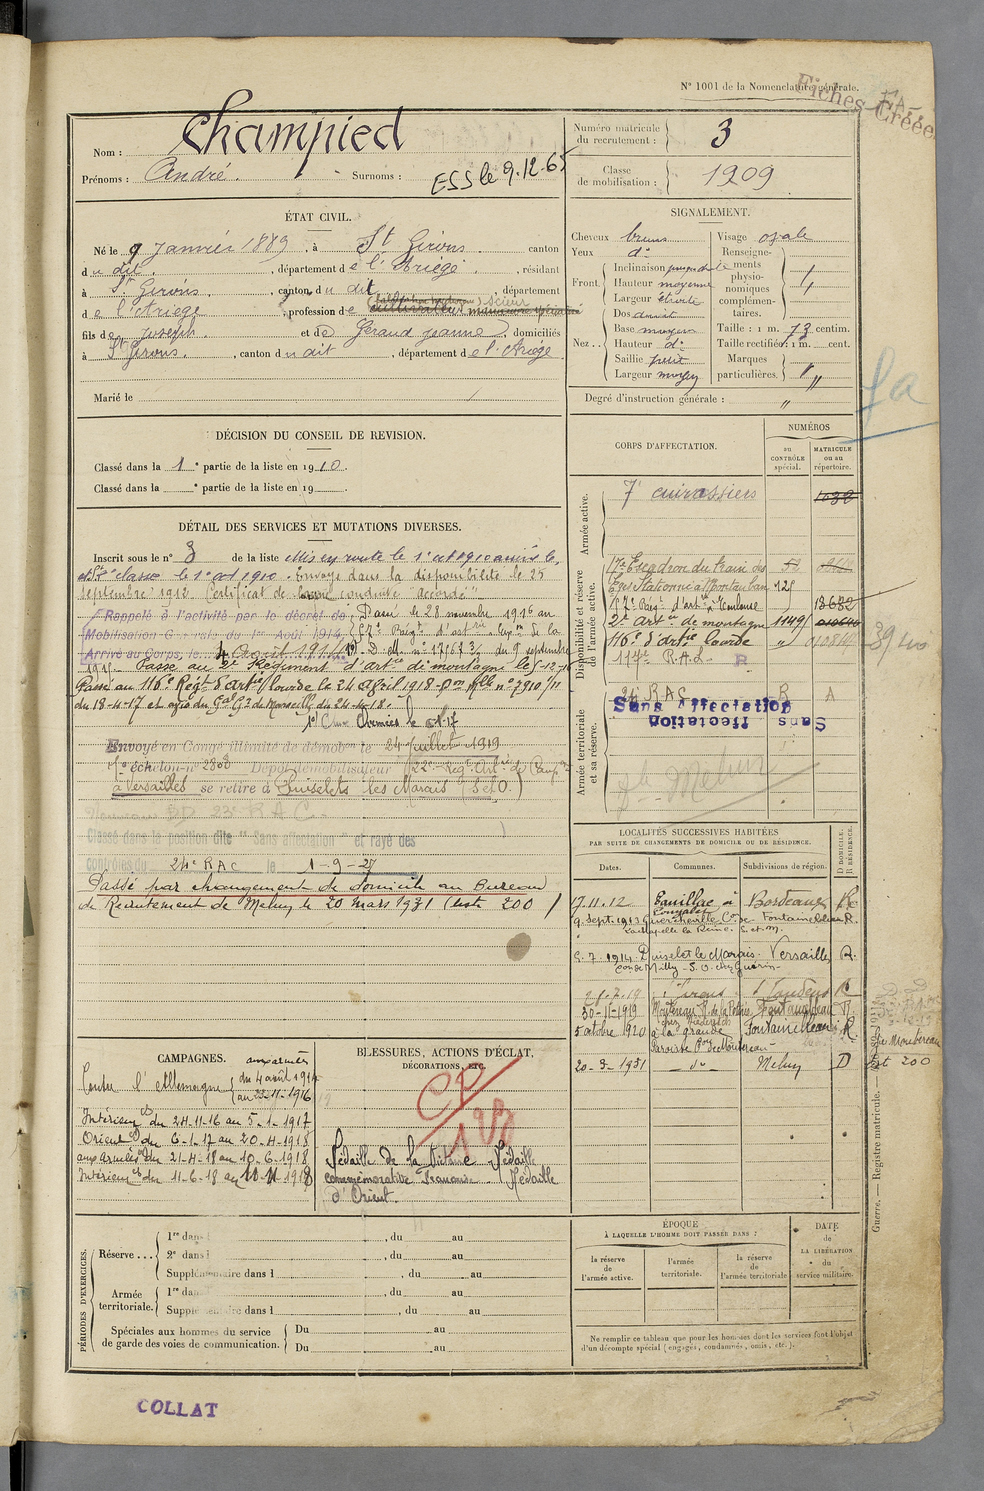 N° 1001 de la Nomenclature générale.
Fiches Créées
Nom : Champied
Prénoms : André. Surnoms :
ESS le 9.12.65
Numéro matricule du recrutement : 3
Classe de mobilisation : 1909
ÉTAT CIVIL.
Né le 9 Janvier 1889, à St Girons canton
du dit, département de l'Ariège, résidant
à St Girons, canton du dit, département
de l'Ariège, profession de cultivateur scieur
fils de Joseph et de Géraud Jeanne, domiciliés
à St Girons, canton du dit, département de l'Ariège.
Marié le
SIGNALEMENT.
Cheveux bruns
Yeux d°
Front. Inclinaison
Hauteur moyenne
Largeur étroite
Nez .. Dos droit
Base moyen
Hauteur d°
Saillie petit
Largeur moyen
Visage ovale
Renseignements physionomiques complémentaires.
Taille : 1 m. 73 centim.
Taille rectifiée : 1 m. cent.
Marques particulières. "
Degré d'instruction générale : "
DÉCISION DU CONSEIL DE REVISION.
Classé dans la 1e partie de la liste en 1910.
Classé dans la e partie de la liste en 19
DÉTAIL DES SERVICES ET MUTATIONS DIVERSES.
Inscrit sous le n° 3 de la liste Mis en route le 1er oct 1910 arrivé le
et St 2e classe le 1er oct 1910. Envoyé dans la disponibilité le 25
septembre 1912 Certificat de bonne conduite "accordé"
Rappelé à l'activité par le décret de
Mobilisation Générale du 1er Août 1914,
Arrivé au Corps, le 4 août 1914
Passé le 28 novembre 1916 au
57e Rég't d'artrie
D. M. n° 17167 3/ du 9 septembre
1916. Passé au 2e Régiment d'artie de montagne le 5-12-16
Passé au 116e Régt d'Artie lourde le 24 Avril 1918 n° 7910/11
du 18-4-17 et avis du Gal Gr de Marseille du 24-4-18.
Envoyé en Congé illimité de démobon le 24 Juillet 1919
échelon n° 2808 Dépôt démobilisateur 22e Régt Art de Campne
à Versailles se retire à Puiselets les Marais (S et O.)
Classé dans la position dite "Sans affectation" et rayé des
contrôles du 24e RAC le 1-9-27
Passé par changement de domicile au Bureau
de Recrutement de Melun le 20 mars 1931 (liste 200)
CORPS D'AFFECTATION.
NUMÉROS
au CONTRÔLE spécial.
MATRICULE ou au répertoire.
Armée active.
7e cuirassiers 1032
Disponibilité et réserve de l'armée active.
17e Escadron du train des
Eqs Stationné à Montauban 125
57e Régt d'artie à Toulouse 13632
2e artie de montagne 1149
116e d'artie lourde
117e R.A.L.
Armée territoriale et sa réserve.
24 RAC R A
Sans affectation
Sans affectation
Melun
LOCALITÉS SUCCESSIVES HABITÉES
PAR SUITE DE CHANGEMENTS DE DOMICILE OU DE RÉSIDENCE.
Dates. Communes. Subdivisions de région. D DOMICILE. R RÉSIDENCE.
17.11.12 Pauillac Bordeaux R
9 Sept. 1913 Guercheville Con de Fontainebleau R.
La Chapelle la Reine. S. et M.
6.7.1914 Puiselet le Marais. Versailles R.
Con de Milly - S. O. chez Guérin
28.7.19 St Girons St Gaudens R
30-11-1919 Montereau Fontainebleau R.
5 octobre 1920 à la grande Fontainebleau R.
Paroisse Con de Montereau
20-3-1931 d° Melun D
CAMPAGNES.
aux armées
Contre l'Allemagne du 4 août 1914
au 23-11-1916
Intérieur du 24-11-16 au 5-1-1917
Orient du 6-1-17 au 20-4-1918
aux armées du 21-4-18 au 10-6-1918
Intérieur du 11-6-18 au 10-11-1918
BLESSURES, ACTIONS D'ÉCLAT,
DÉCORATIONS, ETC.
CP
Médaille de la Victoire Médaille
commémorative Française. Médaille
d'Orient.
PÉRIODES D'EXERCICES.
Réserve ... 1re dans l , du au
2e dans l , du au
Supplémentaire dans l , du au
Armée territoriale. 1re dans l , du au
Supplémentaire dans l , du au
Spéciales aux hommes du service de garde des voies de communication. Du au
Du au
ÉPOQUE
À LAQUELLE L'HOMME DOIT PASSER DANS :
la réserve de l'armée active.
l'armée territoriale.
la réserve de l'armée territoriale
DATE de LA LIBÉRATION du service militaire.
Ne remplir ce tableau que pour les hommes dont les services font l'objet
d'un décompte spécial (engagés, condamnés, omis, etc.).
Guerre. — Registre matricule.
COLLAT